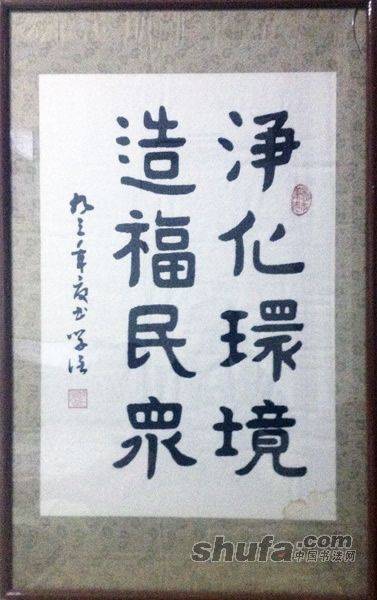 淨化環境
造福民眾
九三年夏書學信
shufa.com
中国书法网